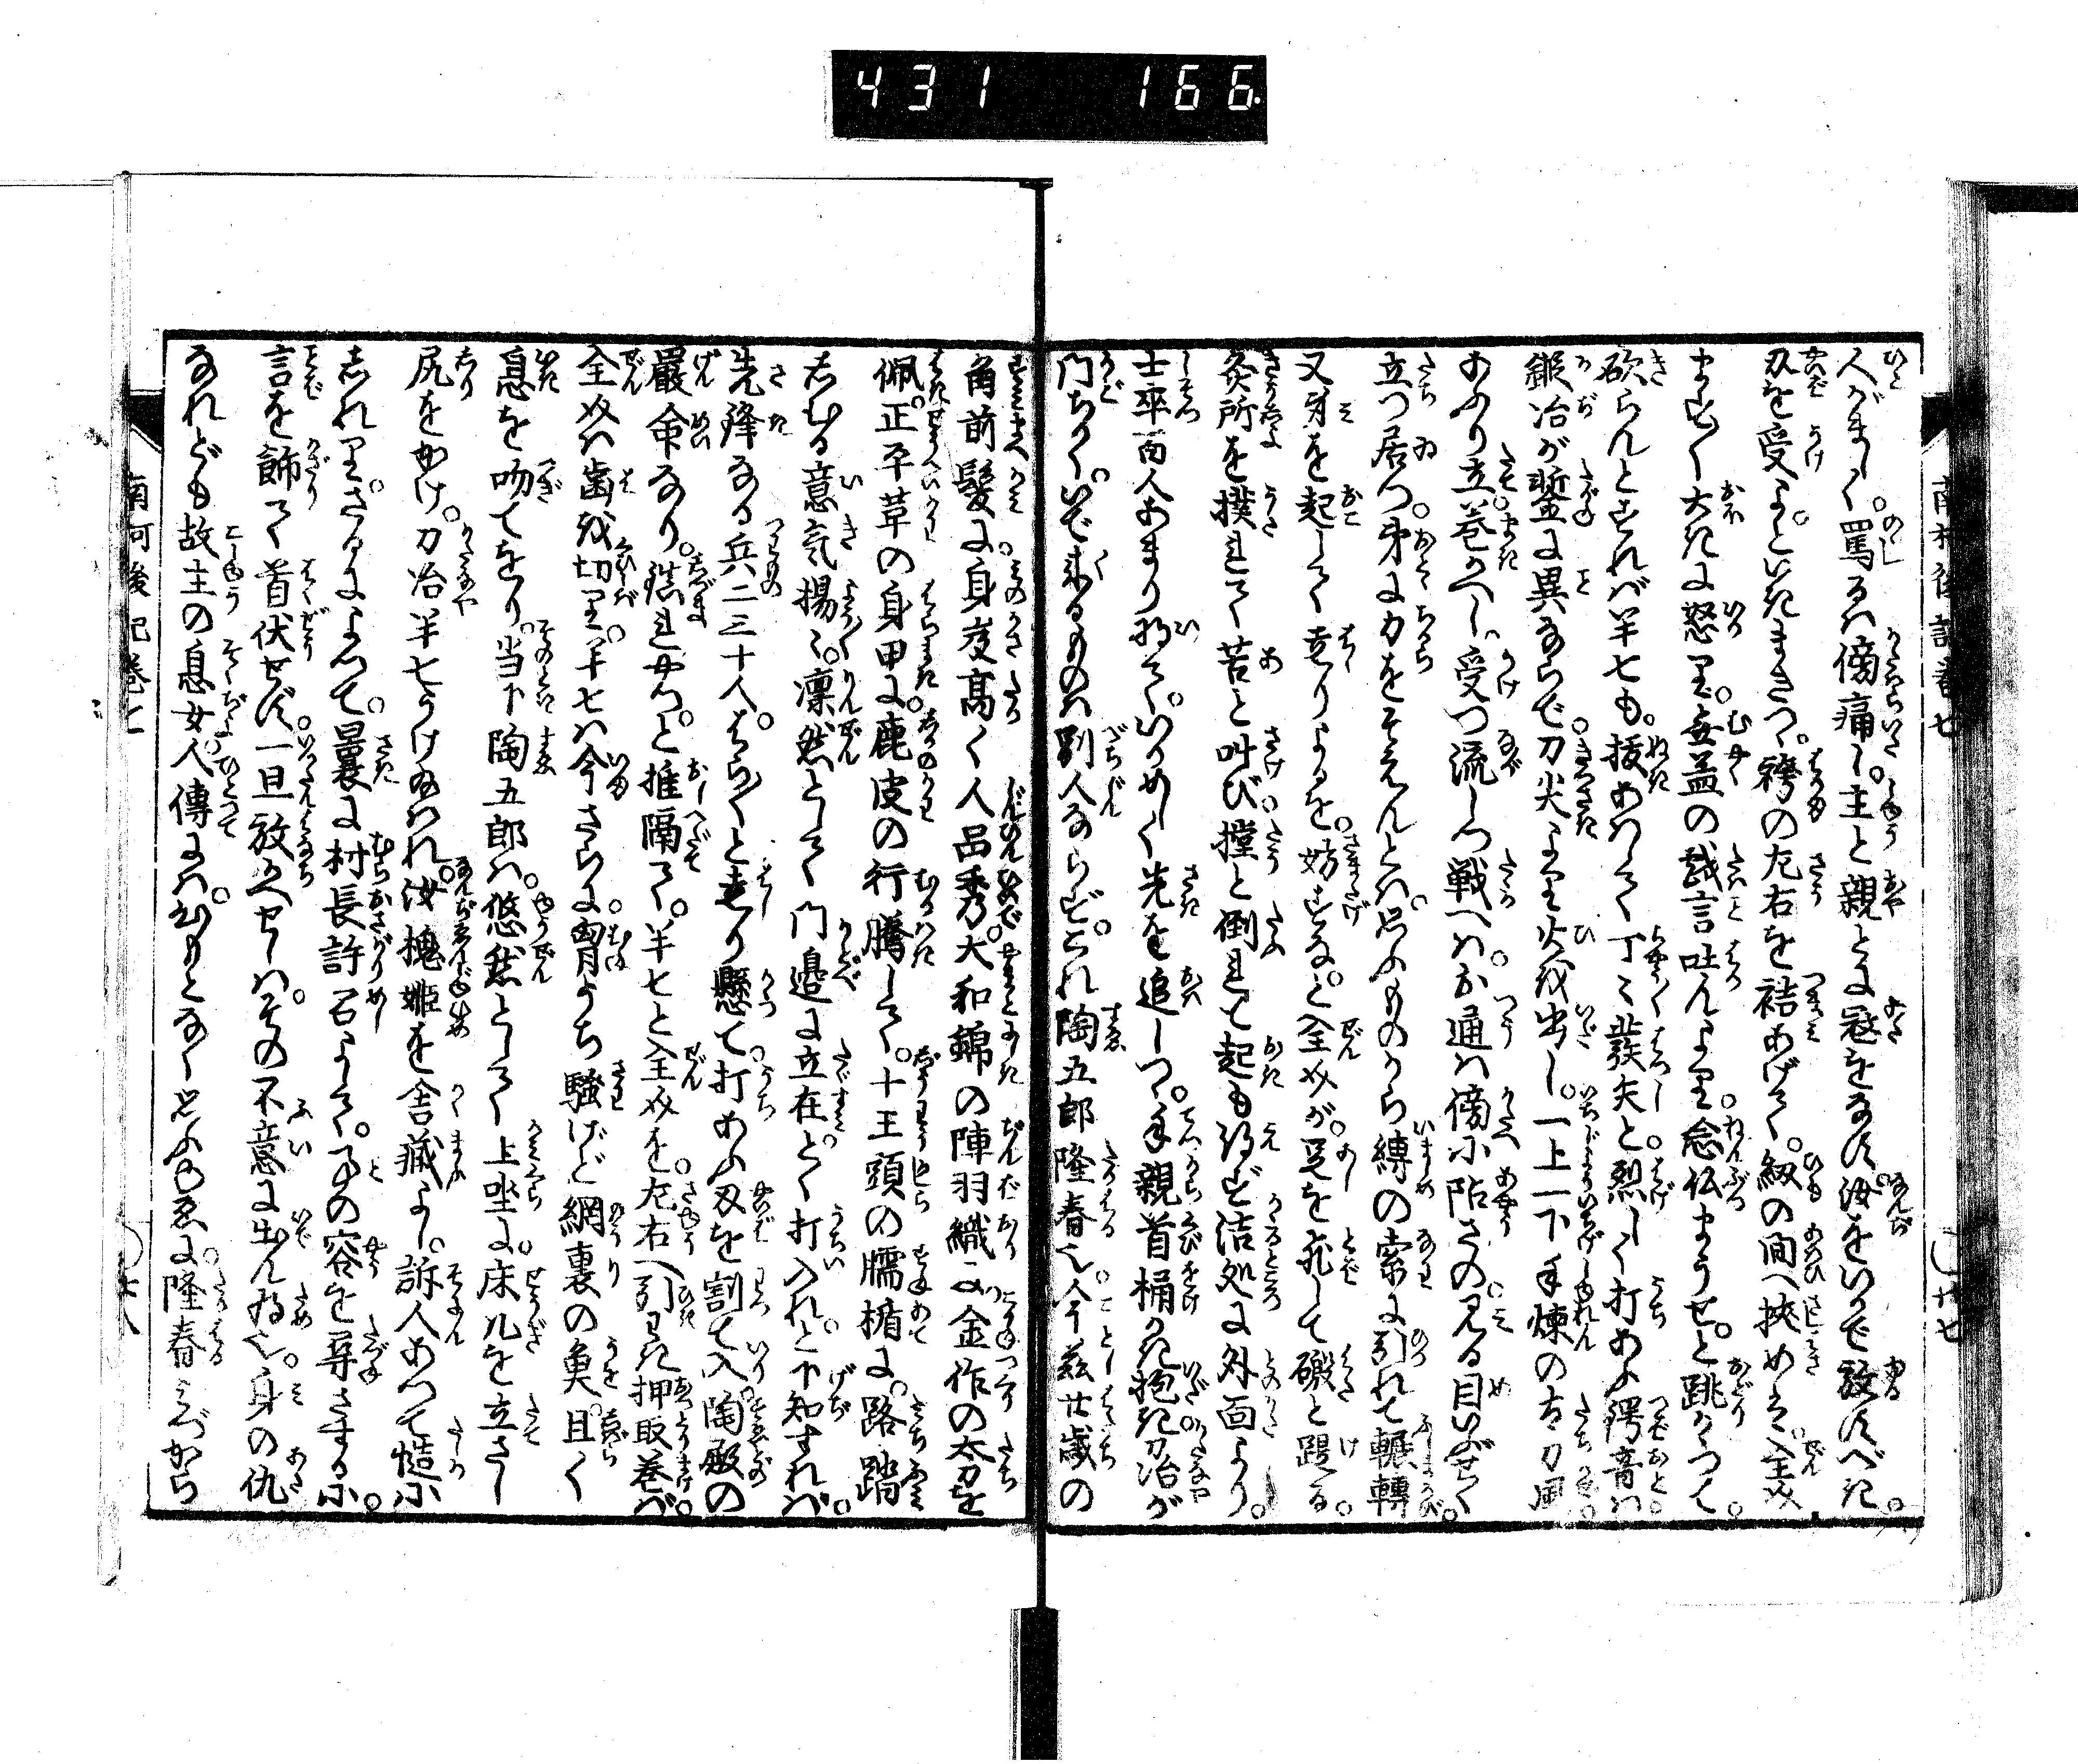 431 166
南柯後記巻七
人がましく。罵るは傍痛し。主と親とに冠をなす。汝をいかで放すべき。
刃を受よ。といきまきつ。袴の左右を結あげて。紐の間へ挟めは。全好
ますく大きに怒り。無益の戯言吐んより。念仏まうせ。と跳かつて。
砍らんとすれば半七も。抜あはして丁々発矢と。烈しく打あふ鍔音は
鍛冶が鏨に異ならで。刀尖より火を出し。一上一下手煉の古刀風
あふり立。巻かへし。受つ流しつ戦へば。お通は傍に阽さの。見る目いぶせく
立つ居つ。弟に力をそえんとは。思ふものから縛の索に引れて輾轉
又身を起して走りよるを。妨すな。と全好が。足を飛して礑と踶る。
灸所を撲れて苦と叫び。撐と倒れて起も得ず。浩処に外面より。
士卒百人あまり将て。いかめしく先を追しつ。手親首桶かき抱き刀冶が
門ちかく。いで来るものは別人ならず。これ陶五郎隆春也。今茲廿歳の
角前髪に。身度高く人品秀。大和錦の陣羽織に。金作の太刀を
佩。正平草の身甲に。鹿皮の行騰して。十王頭の臑楯に。路踏
しむる意気揚々。凛然として門邉に立在。とく打入れ。と下知すれば。
先鋒なる兵二三十人。はら〳〵と走り懸て。打あふ刃を割て入。陶殿の
嚴命なり。鎮れやつ。と推隔て。半七と全好を。左右へ引わき押取巻ば。
全好は歯を切り。半七は今さらに。胷うち騒げど網裏の魚。且く
息を吻てをり。当下陶五郎は。悠然として上坐に。床几を立さし
尻をかけ。刀冶半七うけ給はれ。汝槐姫を舎藏よし。訴人あつて慥に
しれり。さるによつて。曩に村長許召よして。事の容を尋さするに。
言を飾て首伏せず。一旦放かへせしは。その不意に出ん為也。身の仇
なれども故主の息女。人傳には。討もとなく思ふゆゑに。隆春みづから
南柯後記巻七